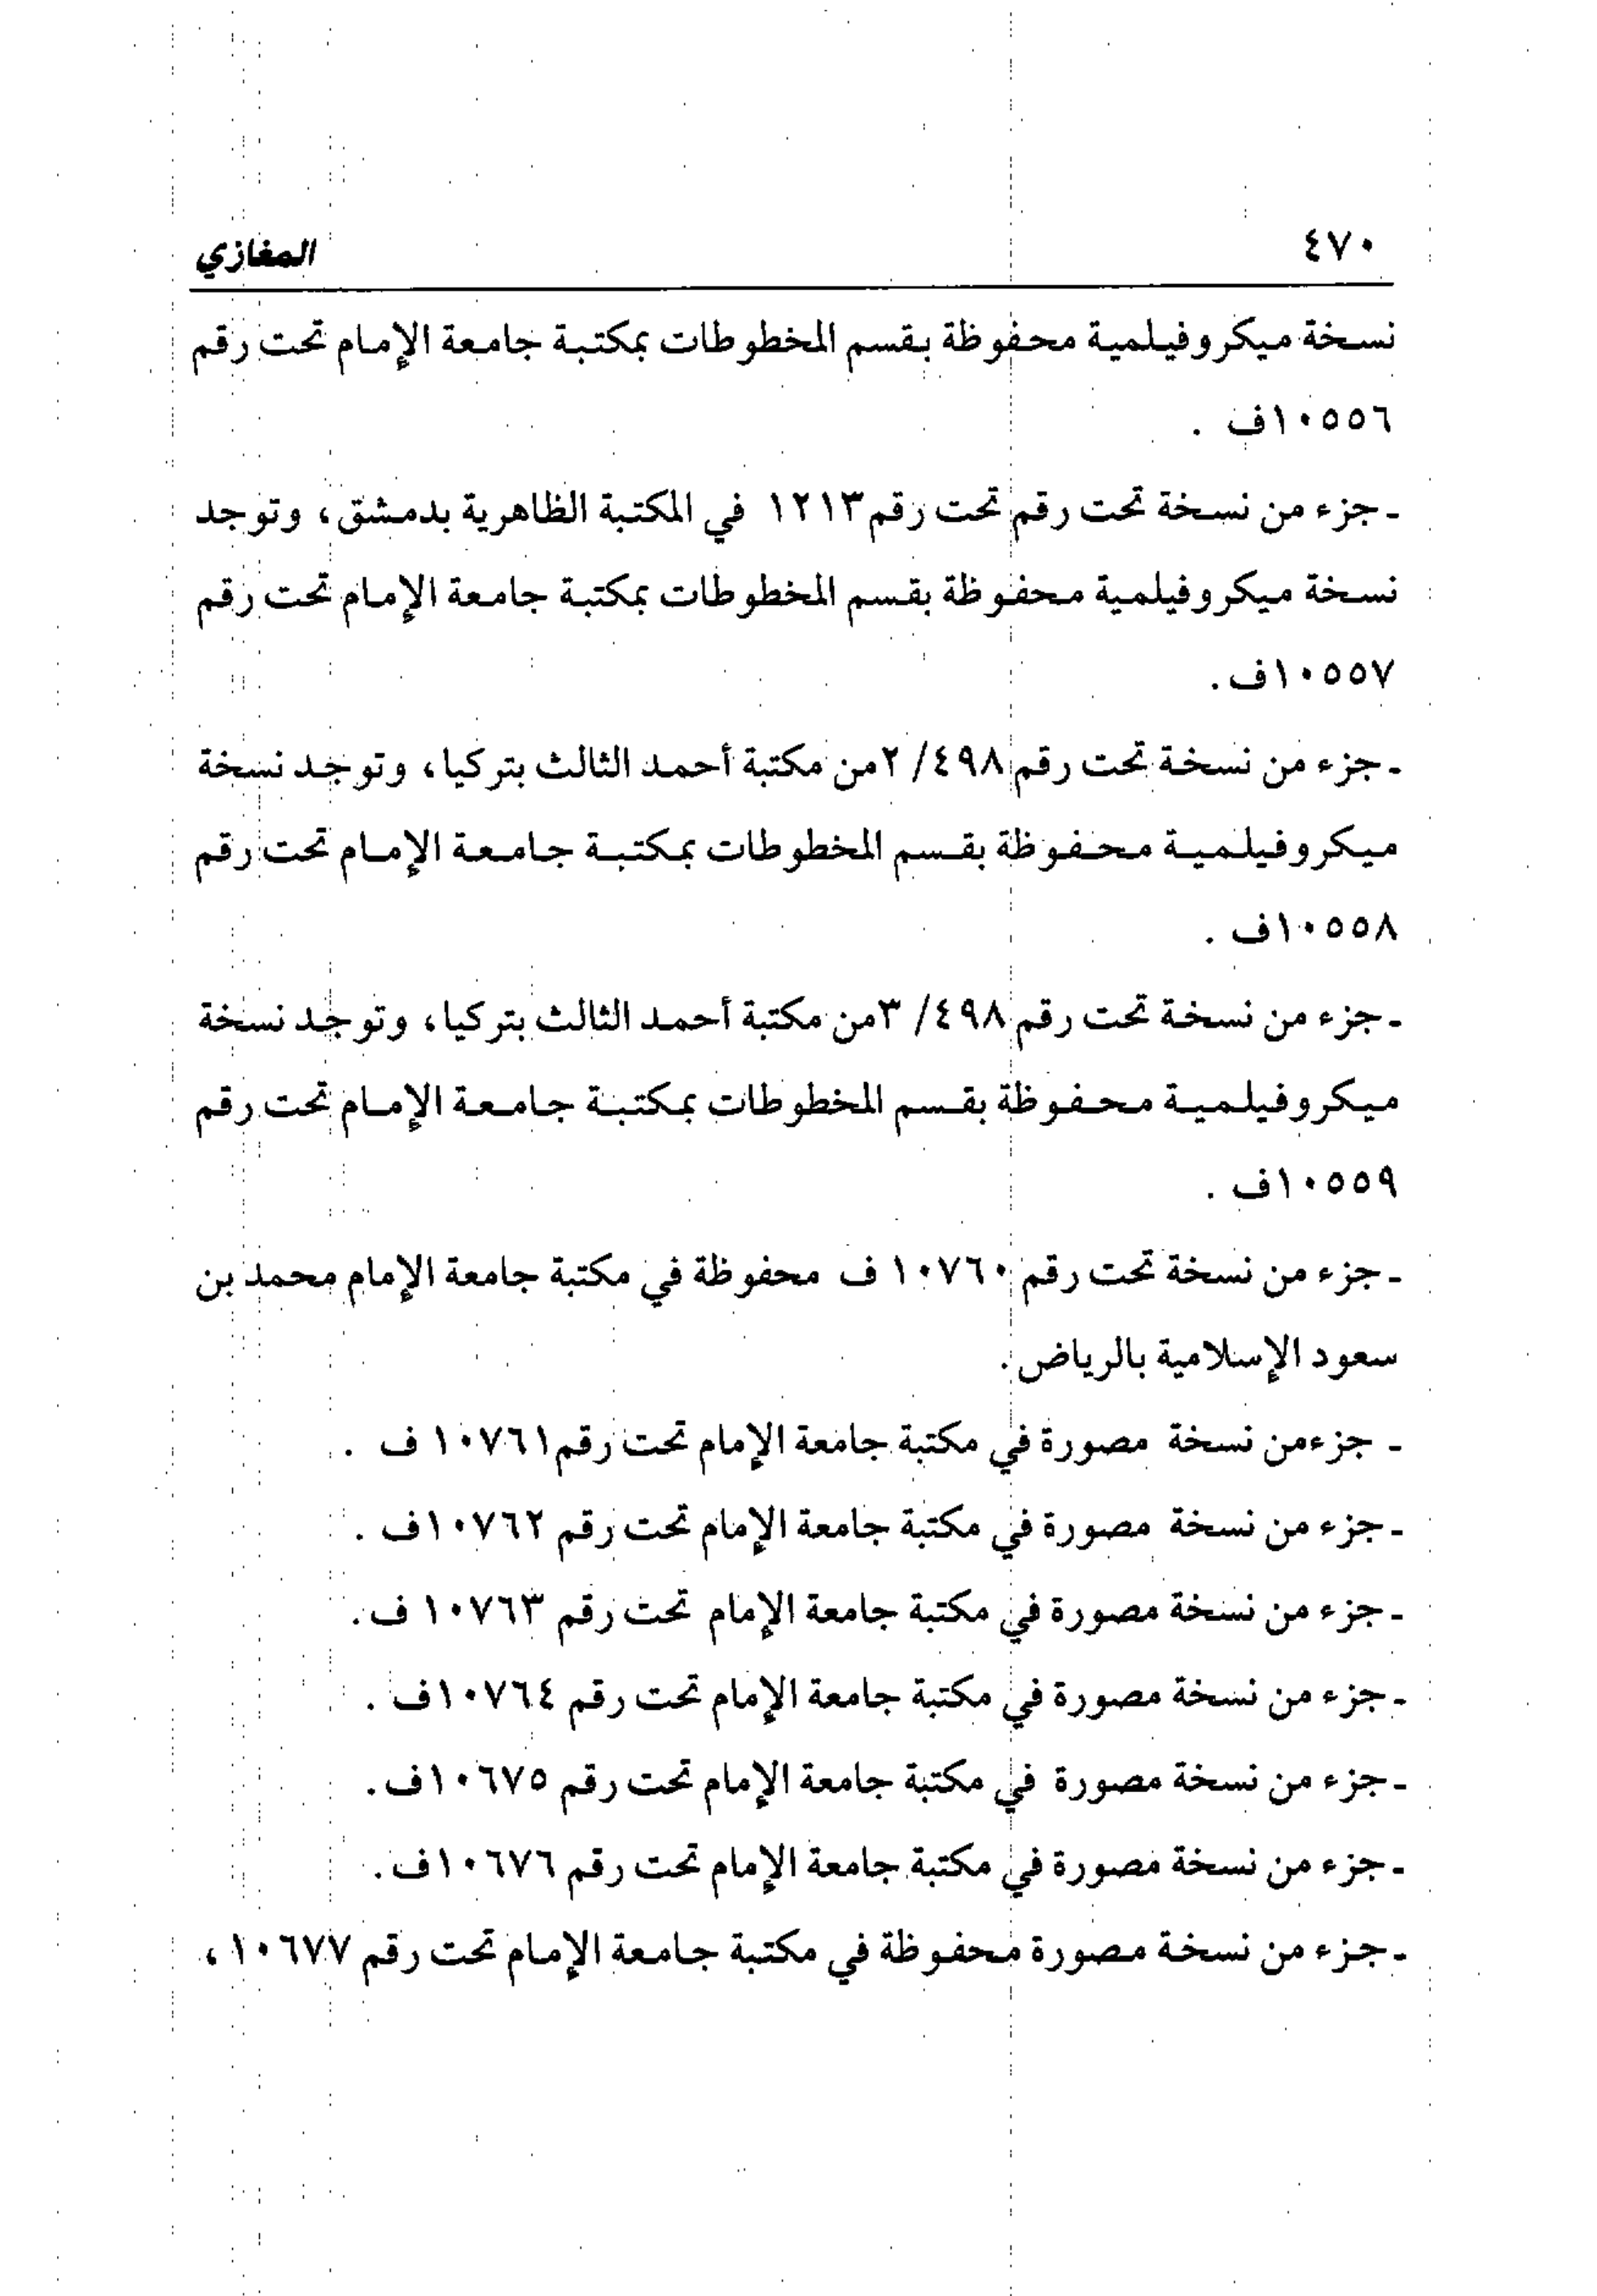 ٤٧٠
المغازي
نسخة ميكروفيلمية محفوظة بقسم المخطوطات بمكتبة جامعة الإمام تحت رقم
١٠٥٥٦ف .
ـ جزء من نسخة تحت رقم تحت رقم١٢١٣ في المكتبة الظاهرية بدمشق، وتوجد
نسخة ميكروفيلمية محفوظة بقسم المخطوطات بمكتبة جامعة الإمام تحت رقم
١٠٥٥٧ف.
ـ جزء من نسخة تحت رقم ٤٩٨/ ٢من مكتبة أحمد الثالث بتركيا، وتوجد نسخة
ميكروفيلمية محفوظة بقسم المخطوطات بمكتبة جامعة الإمام تحت رقم
١٠٥٥٨ف .
ـ جزء من نسخة تحت رقم ٤٩٨/ ٣من مكتبة أحمد الثالث بتركيا، وتوجد نسخة
ميكروفيلمية محفوظة بقسم المخطوطات بمكتبة جامعة الإمام تحت رقم
١٠٥٥٩ف .
ـ جزء من نسخة تحت رقم ١٠٧٦٠ ف محفوظة في مكتبة جامعة الإمام محمد بن
سعود الإسلامية بالرياض.
ـ جزءمن نسخة مصورة في مكتبة جامعة الإمام تحت رقم١٠٧٦١ ف .
ـ جزء من نسخة مصورة في مكتبة جامعة الإمام تحت رقم ١٠٧٦٢ف .
ـ جزء من نسخة مصورة في مكتبة جامعة الإمام تحت رقم ١٠٧٦٣ ف.
ـ جزء من نسخة مصورة في مكتبة جامعة الإمام تحت رقم ١٠٧٦٤ف .
ـ جزء من نسخة مصورة في مكتبة جامعة الإمام تحت رقم ١٠٦٧٥ف.
ـ جزء من نسخة مصورة في مكتبة جامعة الإمام تحت رقم ١٠٦٧٦ف.
ـ جزء من نسخة مصورة محفوظة في مكتبة جامعة الإمام تحت رقم ١٠٦٧٧،